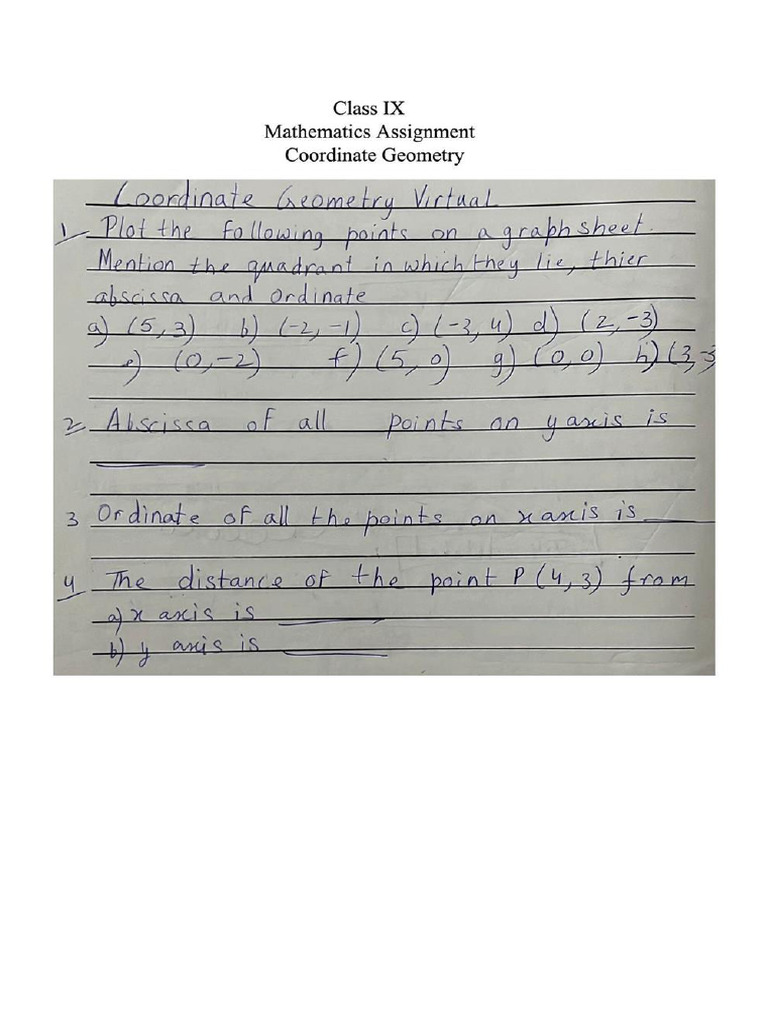 Class IX
Mathematics Assignment
Coordinate Geometry
Coordinate Geometry Virtual
1 Plot the following points on a graph sheet.
Mention the quadrant in which they lie, thier
abscissa and ordinate
a) (5, 3) b) (-2, -1) c) (-3, 4) d) (2, -3)
e) (0, -2) f) (5, 0) g) (0, 0) h) (3, -3
2 Abscissa of all points on y axis is
3 Ordinate of all the points on x axis is
4 The distance of the point P (4, 3) from
a) x axis is
b) y axis is